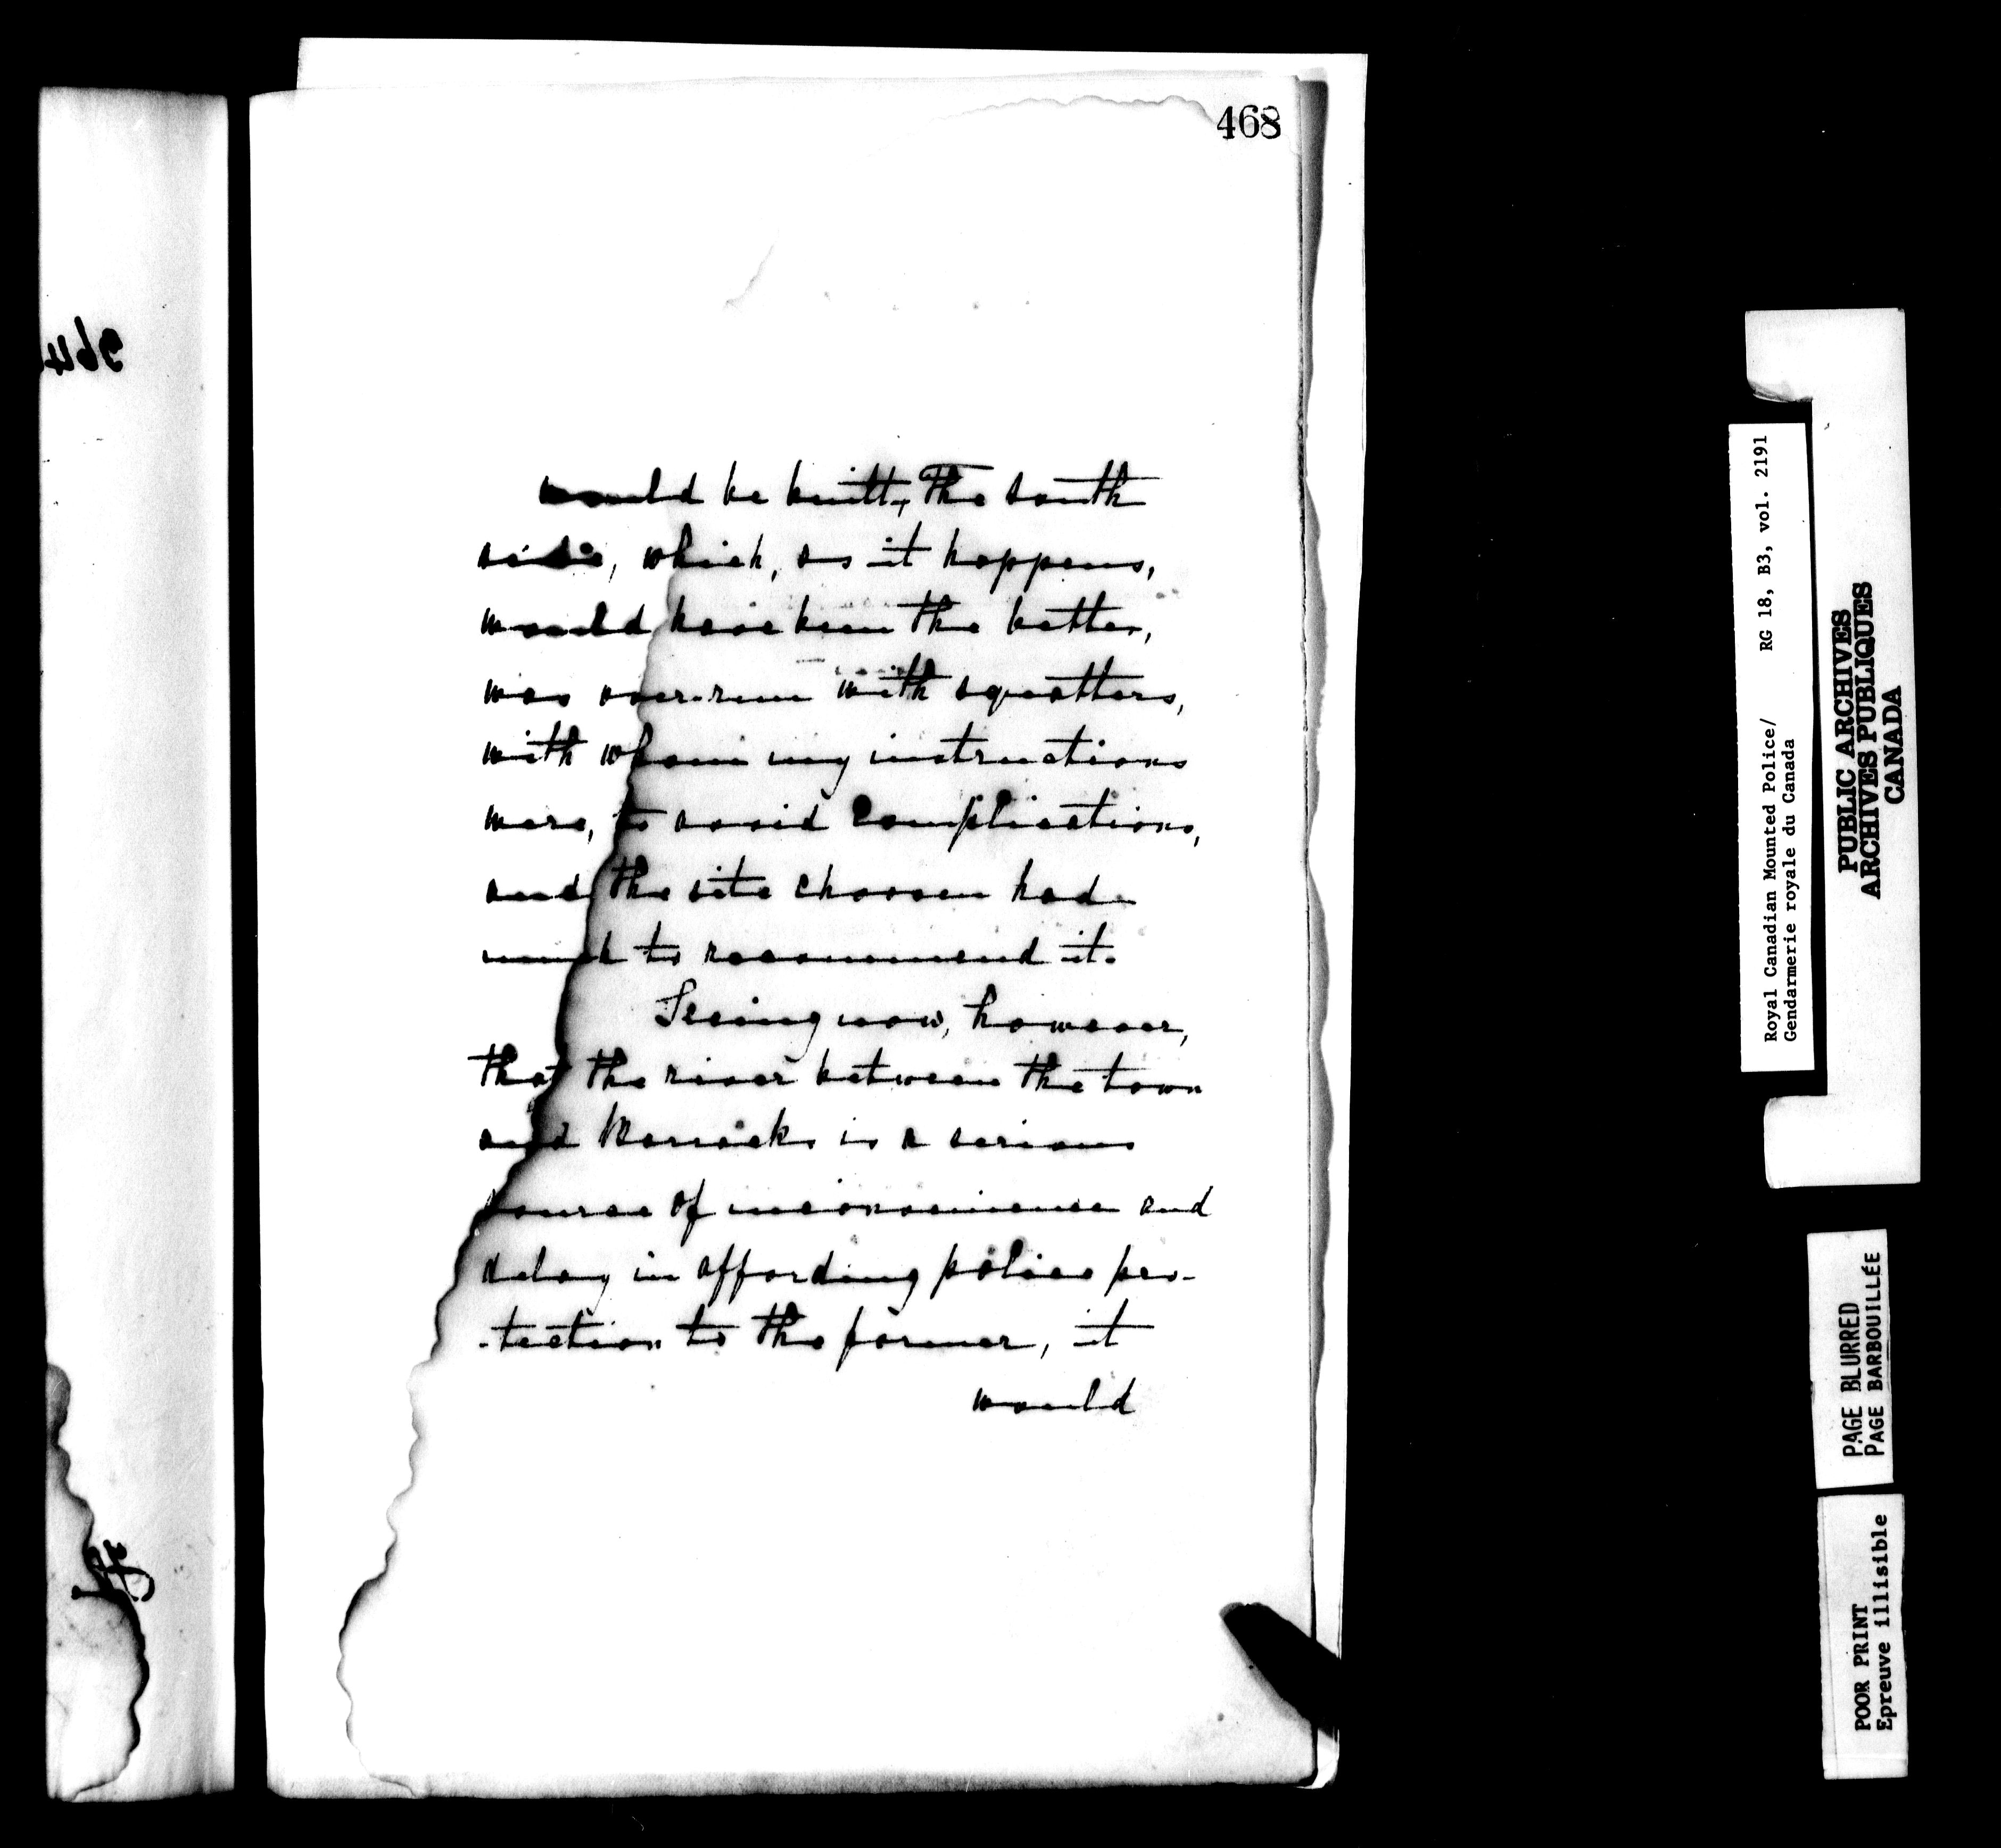 468
would be built, The south
side, which, as it happens,
would have been the better,
was over-run with squatters,
with whom my instructions
were, to avoid complications,
and the site choosen had
much to recommend it.
Seeing now, however,
that the river between the town
and Barracks is a serious
source of inconvenience and
delay in affording police pro-
-tection to the former, it
would
964
Royal Canadian Mounted Police/ RG 18, B3, vol. 2191
Gendarmerie royale du Canada
PUBLIC ARCHIVES
ARCHIVES PUBLIQUES
CANADA
PAGE BLURRED
PAGE BARBOUILLÉE
POOR PRINT
Epreuve illisible